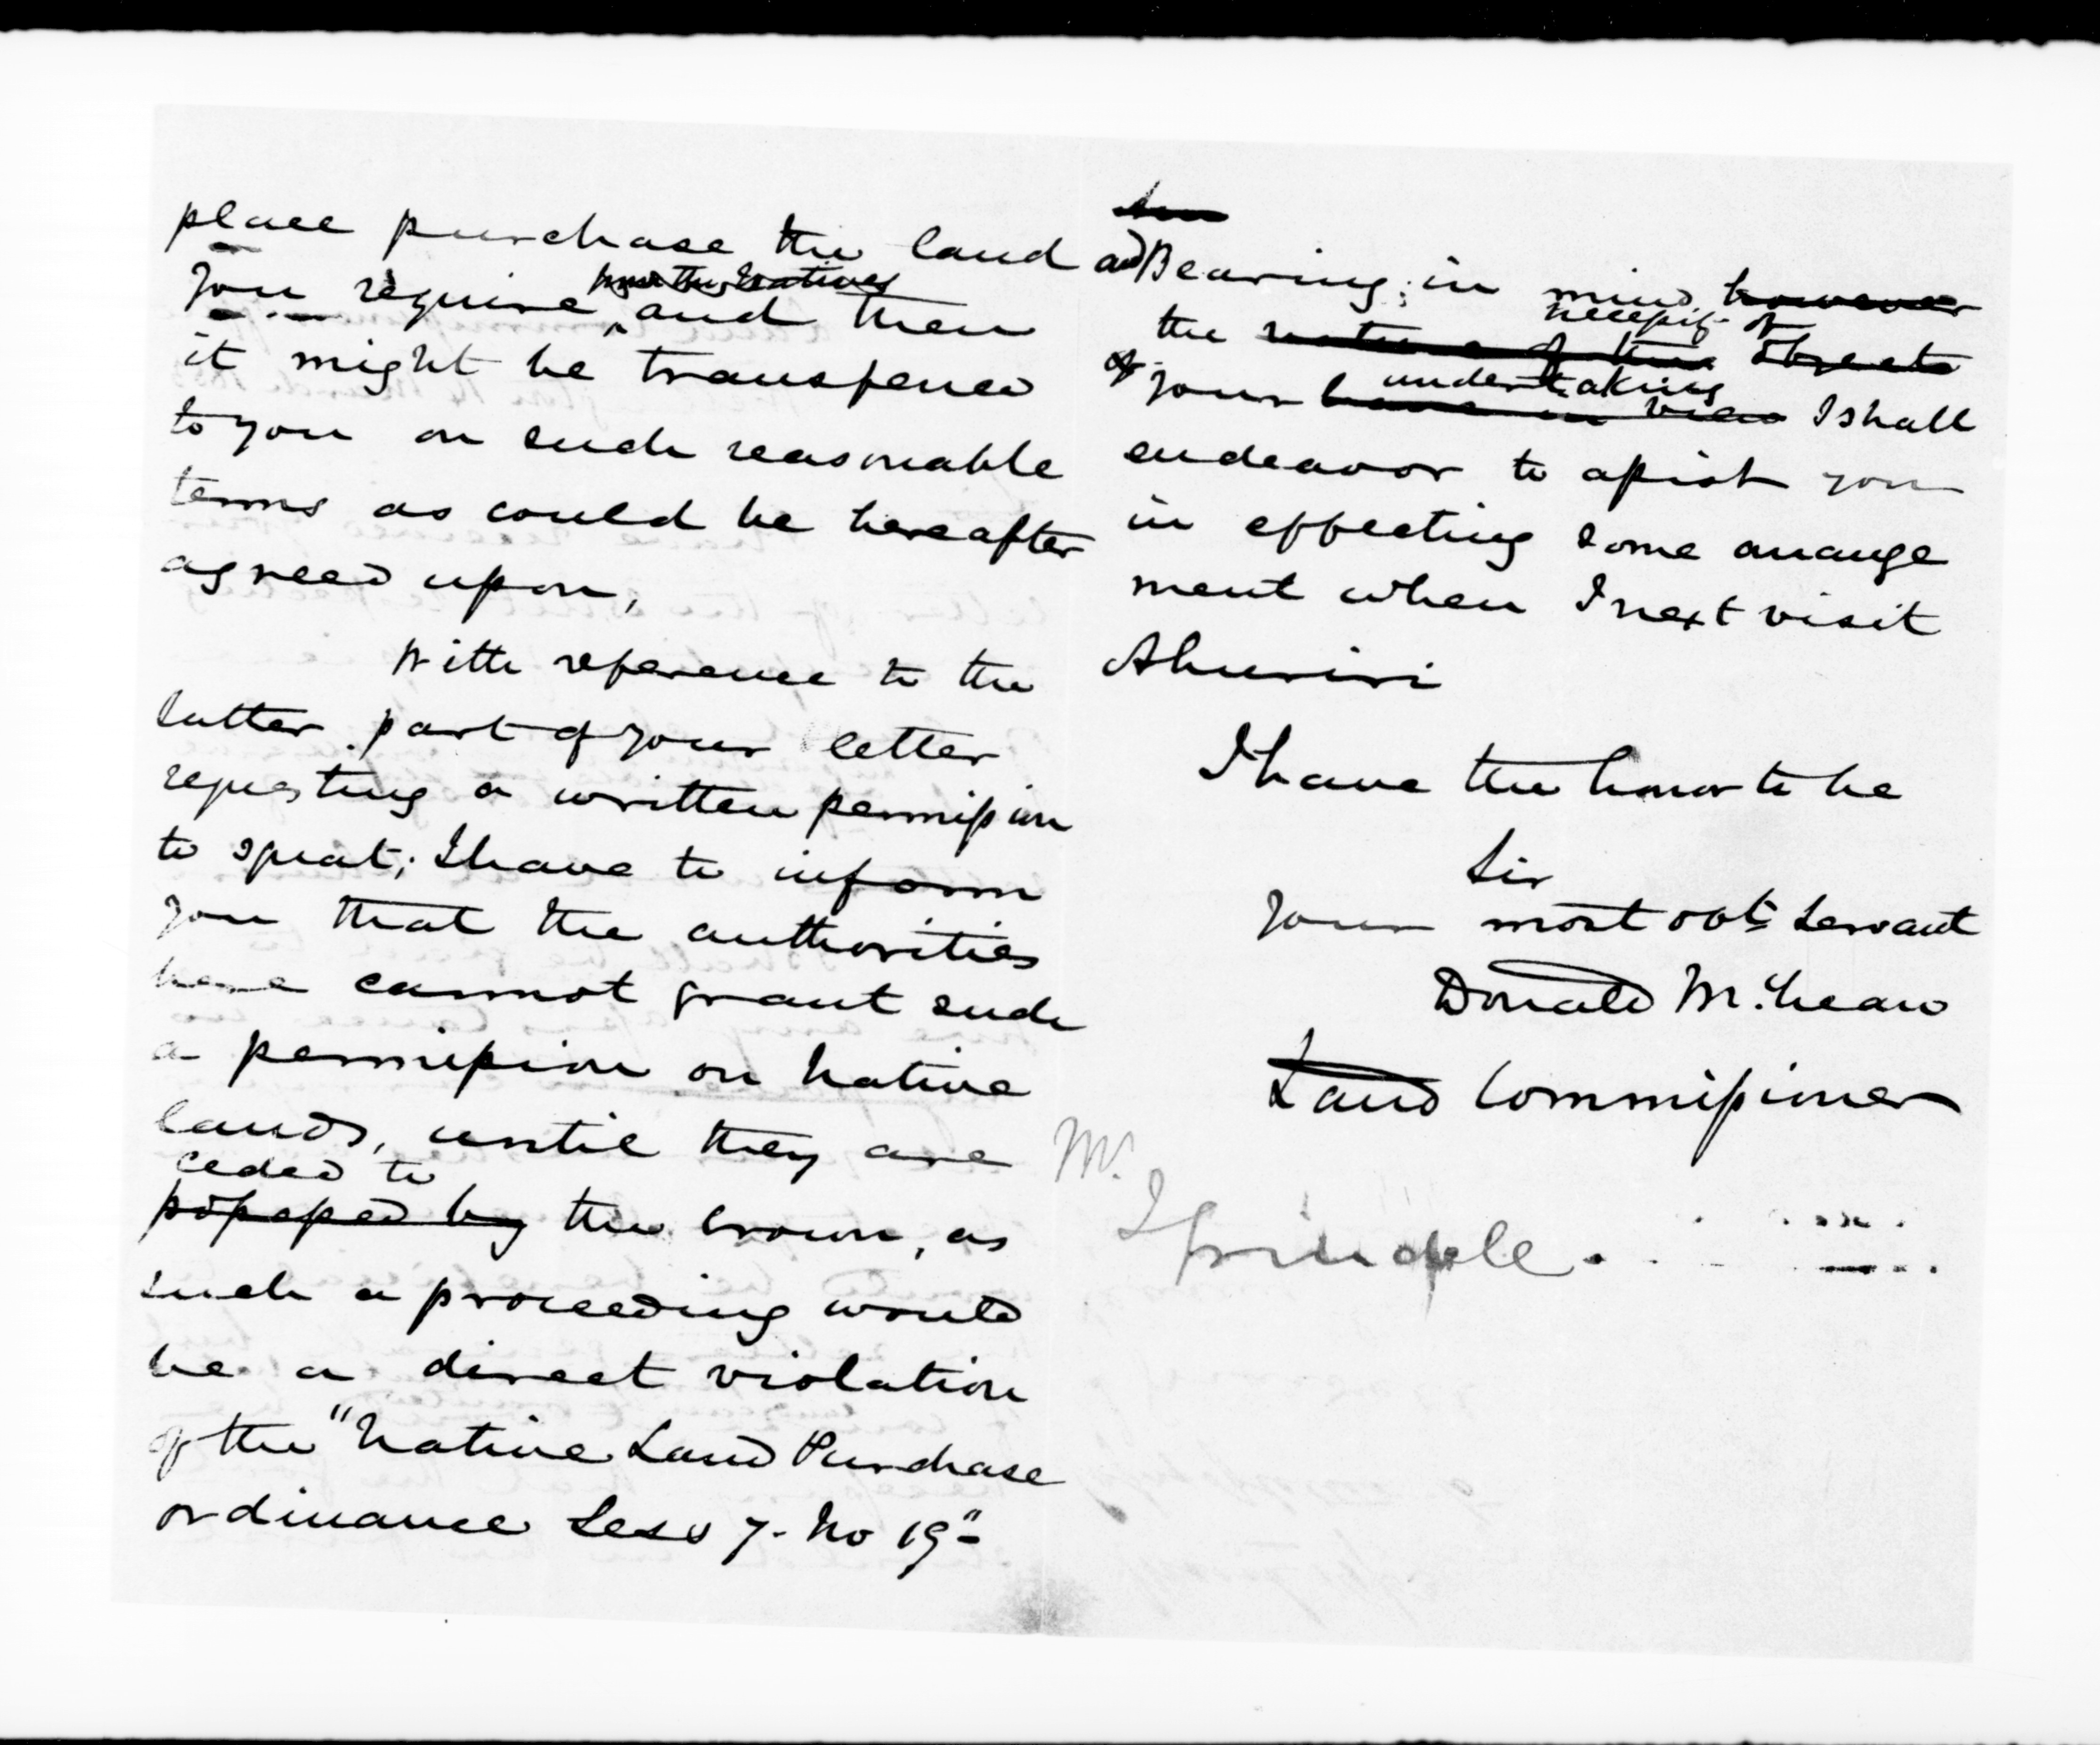 place purchase the land
from the Natives
you require and then
it might be transfered
to you on such reasonable
terms as could be hereafter
agreed upon,
With reference to the
latter part of your letter
requesting a written permission
to squat; I have to inform
you that the authorities
here cannot grant such
a permission on Native
lands, until they are
ceded to
possessed by the Crown, as
such a proceeding would
be a direct violation
of the "Native Land Purchase
ordinance Sess 7. No 19"
and Bearing in mind however
necessity of
the nature of the objects
undertaking
of your have in view I shall
endeavor to assist you
in effecting some arrange
ment when I next visit
Ahuriri
I have the honor to be
Sir
Your most obt. Servant
Donald McLean
Land Commissioner
Mr.
I Grindell.